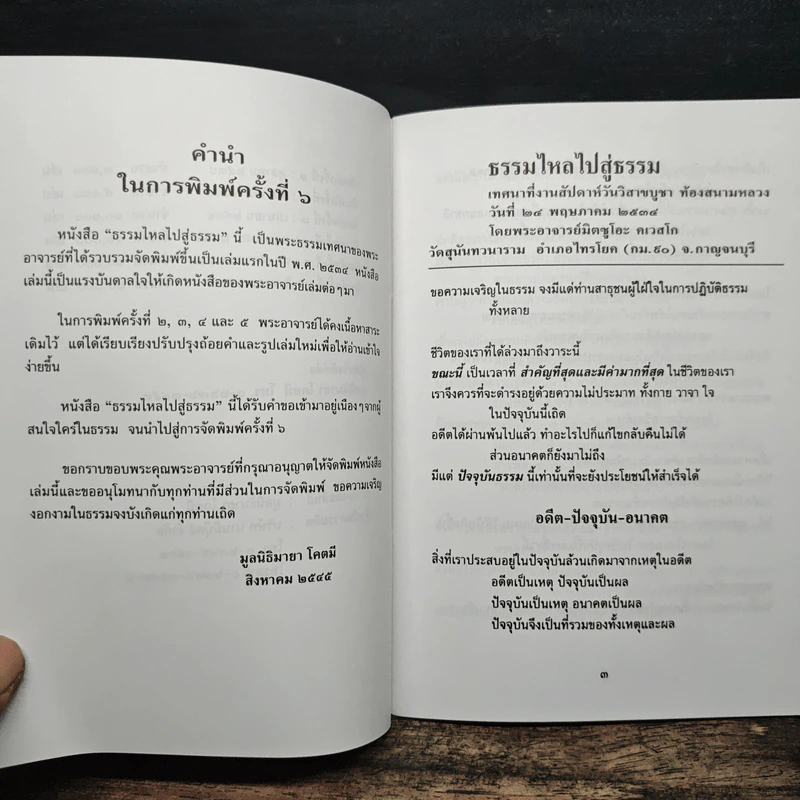 คำนำ
ในการพิมพ์ครั้งที่ ๖
หนังสือ “ธรรมไหลไปสู่ธรรม” นี้ เป็นพระธรรมเทศนาของพระ
อาจารย์ที่ได้รวบรวมจัดพิมพ์ขึ้นเป็นเล่มแรกในปี พ.ศ. ๒๕๓๔ หนังสือ
เล่มนี้เป็นแรงบันดาลใจให้เกิดหนังสือของพระอาจารย์เล่มต่อๆมา
ในการพิมพ์ครั้งที่ ๒, ๓, ๔ และ ๕ พระอาจารย์ได้คงเนื้อหาสาระ
เดิมไว้ แต่ได้เรียบเรียงปรับปรุงถ้อยคำและรูปเล่มใหม่เพื่อให้อ่านเข้าใจ
ง่ายขึ้น
หนังสือ “ธรรมไหลไปสู่ธรรม” นี้ได้รับคำขอเข้ามาอยู่เนืองๆจากผู้
สนใจใคร่ในธรรม จนนำไปสู่การจัดพิมพ์ครั้งที่ ๖
ขอกราบขอบพระคุณพระอาจารย์ที่กรุณาอนุญาตให้จัดพิมพ์หนังสือ
เล่มนี้และขออนุโมทนากับทุกท่านที่มีส่วนในการจัดพิมพ์ ขอความเจริญ
งอกงามในธรรมจงบังเกิดแก่ทุกท่านเถิด
มูลนิธิมายา โคตมี
สิงหาคม ๒๕๔๕
ธรรมไหลไปสู่ธรรม
เทศนาที่งานสัปดาห์วันวิสาขบูชา ท้องสนามหลวง
วันที่ ๒๔ พฤษภาคม ๒๕๓๔
โดยพระอาจารย์มิตซูโอะ คเวสโก
วัดสุนันทวนาราม อำเภอไทรโยค (กม.๙๐) จ.กาญจนบุรี
ขอความเจริญในธรรม จงมีแด่ท่านสาธุชนผู้ใฝ่ใจในการปฏิบัติธรรม
ทั้งหลาย
ชีวิตของเราที่ได้ล่วงมาถึงวาระนี้
ขณะนี้ เป็นเวลาที่ สำคัญที่สุดและมีค่ามากที่สุด ในชีวิตของเรา
เราจึงควรที่จะดำรงอยู่ด้วยความไม่ประมาท ทั้งกาย วาจา ใจ
ในปัจจุบันนี้เถิด
อดีตได้ผ่านพ้นไปแล้ว ทำอะไรไปก็แก้ไขกลับคืนไม่ได้
ส่วนอนาคตก็ยังมาไม่ถึง
มีแต่ ปัจจุบันธรรม นี้เท่านั้นที่จะยังประโยชน์ให้สำเร็จได้
อดีต-ปัจจุบัน-อนาคต
สิ่งที่เราประสบอยู่ในปัจจุบันล้วนเกิดมาจากเหตุในอดีต
อดีตเป็นเหตุ ปัจจุบันเป็นผล
ปัจจุบันเป็นเหตุ อนาคตเป็นผล
ปัจจุบันจึงเป็นที่รวมของทั้งเหตุและผล
๓